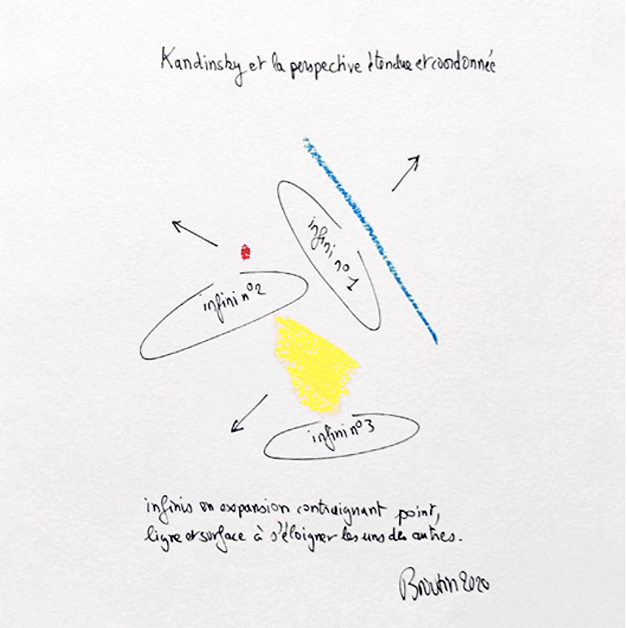 Kandinsky et la perspective étendue et coordonnée
infini n°1
infini n°2
infini n°3
infinis en expansion contraignant point,
ligne et surface à s'éloigner les uns des autres.
2020